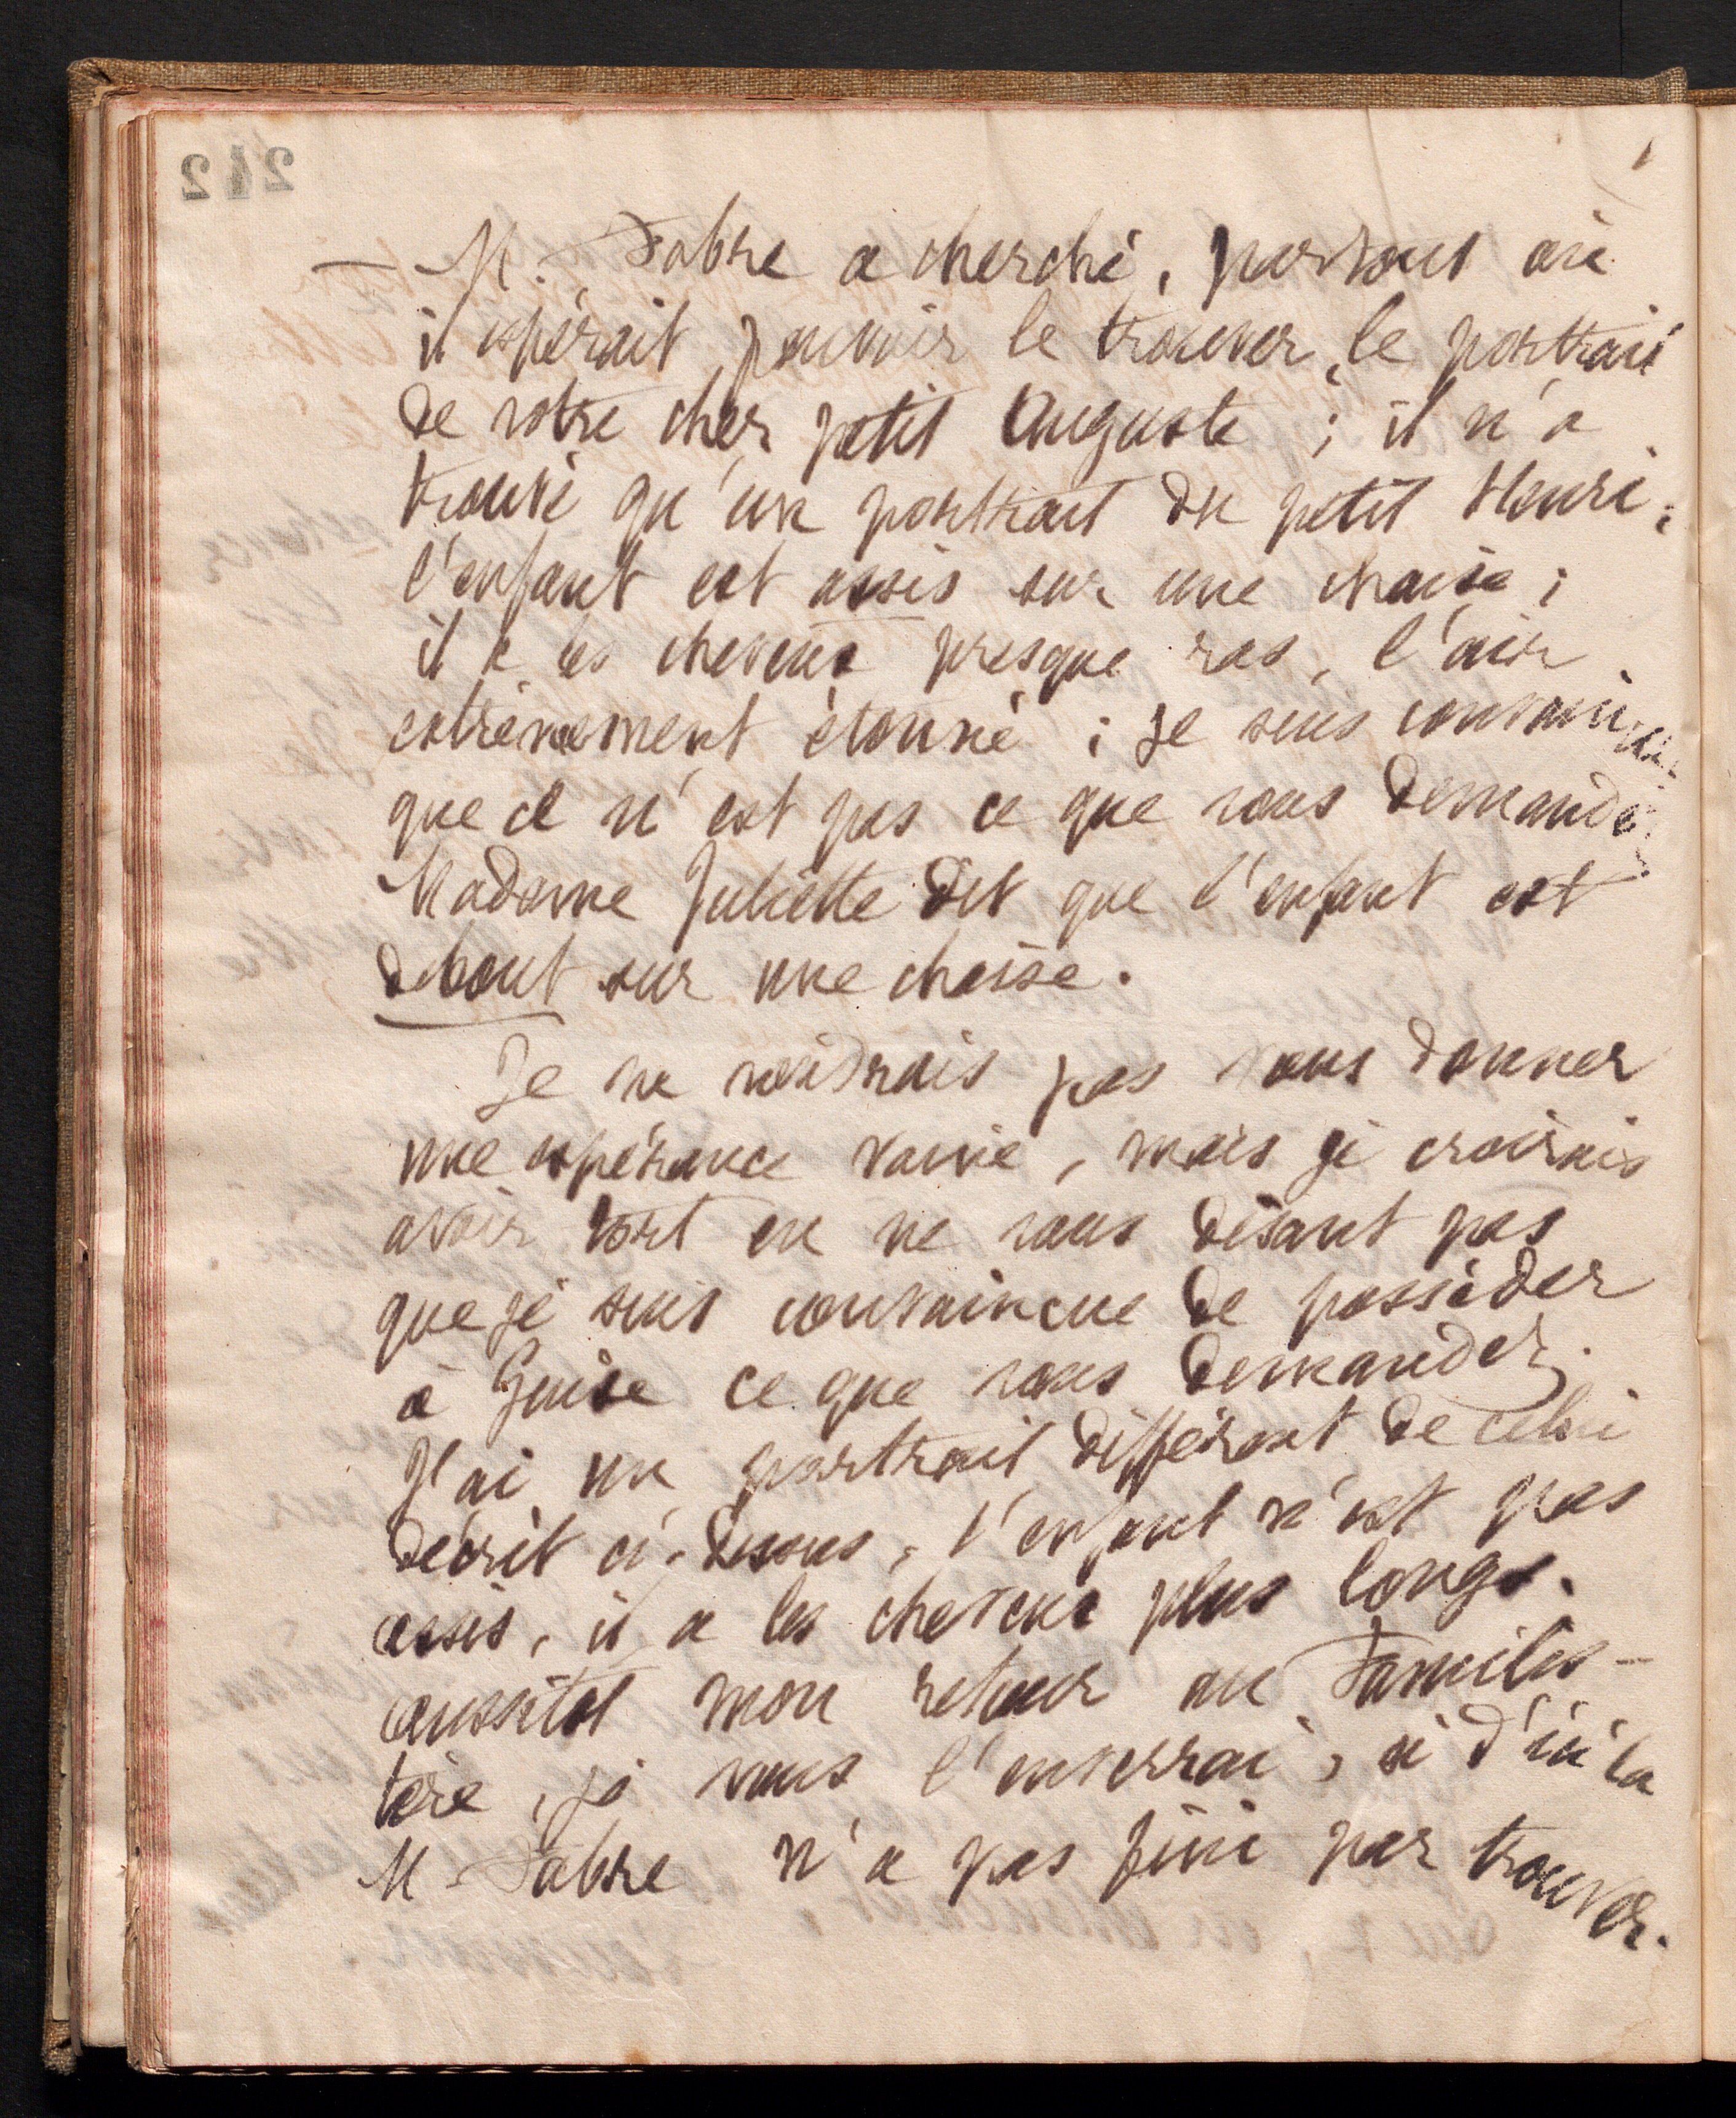 212
— M. Fabre a cherché, partout où
il espérait pouvoir le trouver, le portrait
de votre cher petit Auguste ; il n'a
trouvé qu'un portrait du petit Henri ;
l'enfant est assis sur une chaise ;
il a les cheveux presque ras, l'air
extrêmement étonné ; je suis convaincue
que ce n'est pas ce que vous demandez
Madame Juliette dit que l'enfant est
debout sur une chaise.
Je ne voudrais pas vous donner
une espérance vaine, mais je croirais
avoir tort en ne vous disant pas
que je suis convaincue de posséder
à Guise ce que vous demandez.
J'ai un portrait différent de celui
décrit ci-dessus, l'enfant n'est pas
assis, il a les cheveux plus longs.
aussitôt mon retour au Familis-
tère, je vous l'enverrai, si d'ici là
M. Fabre n'a pas fini par trouver.